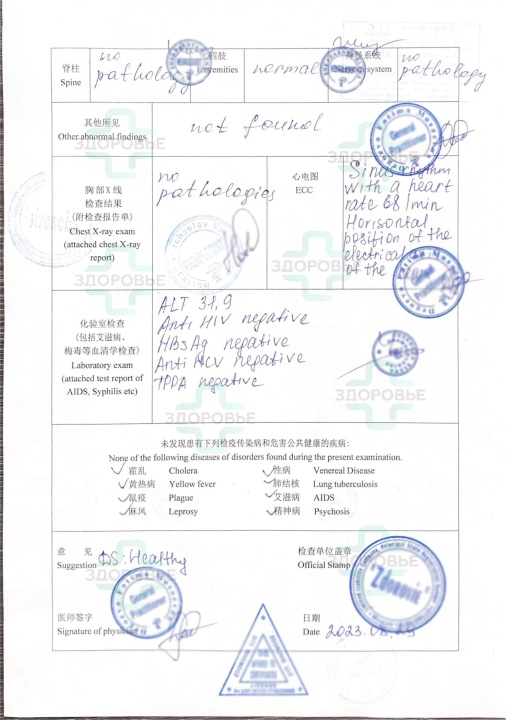 脊柱
Spine
no
pathology
四肢
normal
system
no
pathology
其他所见
Other abnormal findings
not found
胸部 X 线
检查结果
(附检查报告单)
Chest X-ray exam
(attached chest X-ray
report)
no
pathologies
心电图
ECC
Sinus rhythm
with a heart
rate 68/min
Horisontal
position of the
electrical
of the
化验室检查
(包括艾滋病、
梅毒等血清学检查)
Laboratory exam
(attached test report of
AIDS, Syphilis etc)
ALT 31,9
Anti HIV negative
HBsAg negative
Anti HCV negative
negative
ЗДОРОВЬЕ
ЗДОРОВЬЕ
ЗДОРОВЬЕ
ЗДОРОВЬЕ
ЗДОРОВЬЕ
ЗДОРОВЬЕ
未发现患有下列检疫传染病和危害公共健康的疾病:
None of the following diseases of disorders found during the present examination.
✓霍乱 Cholera ✓性病 Venereal Disease
✓黄热病 Yellow fever ✓肺结核 Lung tuberculosis
✓鼠疫 Plague ✓艾滋病 AIDS
✓麻风 Leprosy ✓精神病 Psychosis
意 见
Suggestion DS: Healthy
检查单位盖章
Official Stamp
"Zdorovie"
General
Practitioner
医师签字
Signature of physician
日期
Date 2023.